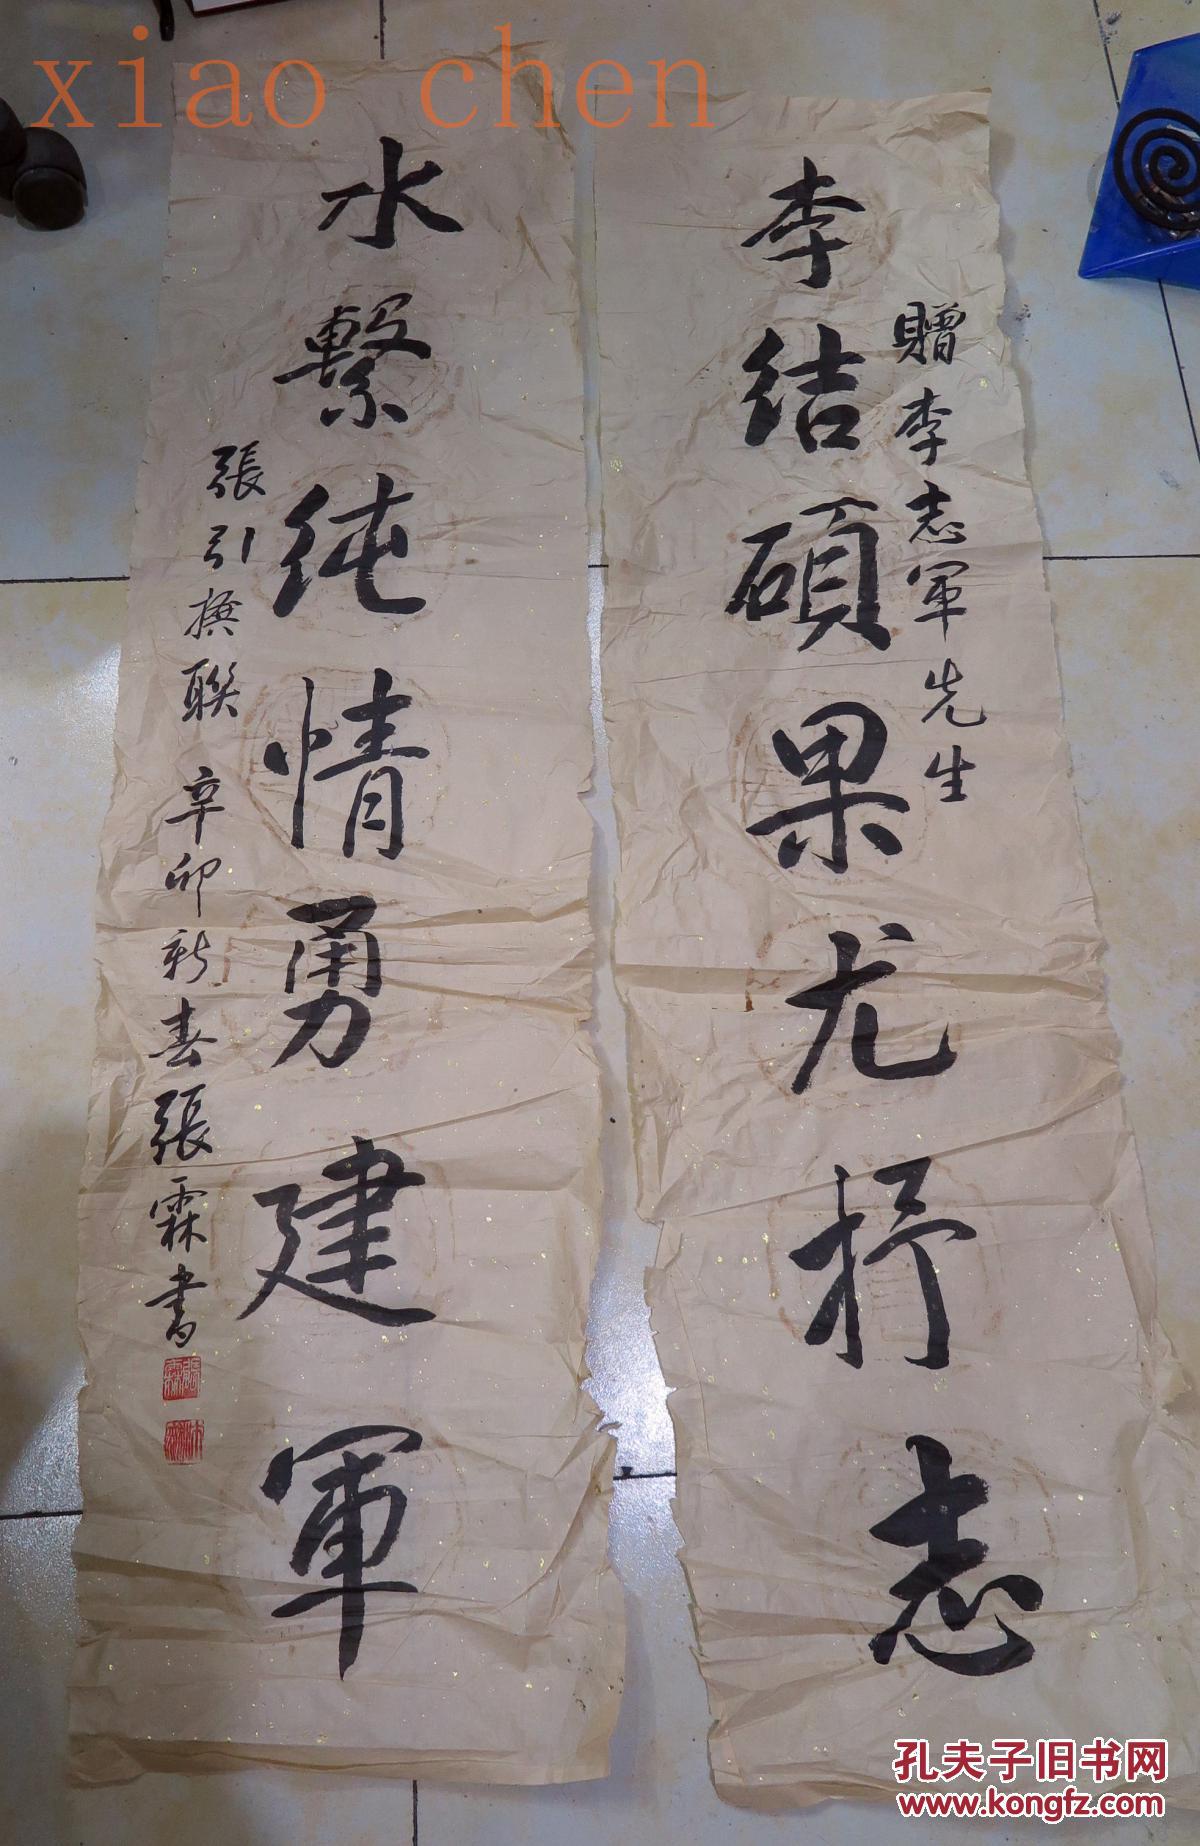 xiao chen
贈李志軍先生
李结碩果尤抒志
水繫纯情勇建軍
張引撰聯 辛卯新春張霖書
張霖
孔夫子旧书网
www.kongfz.com